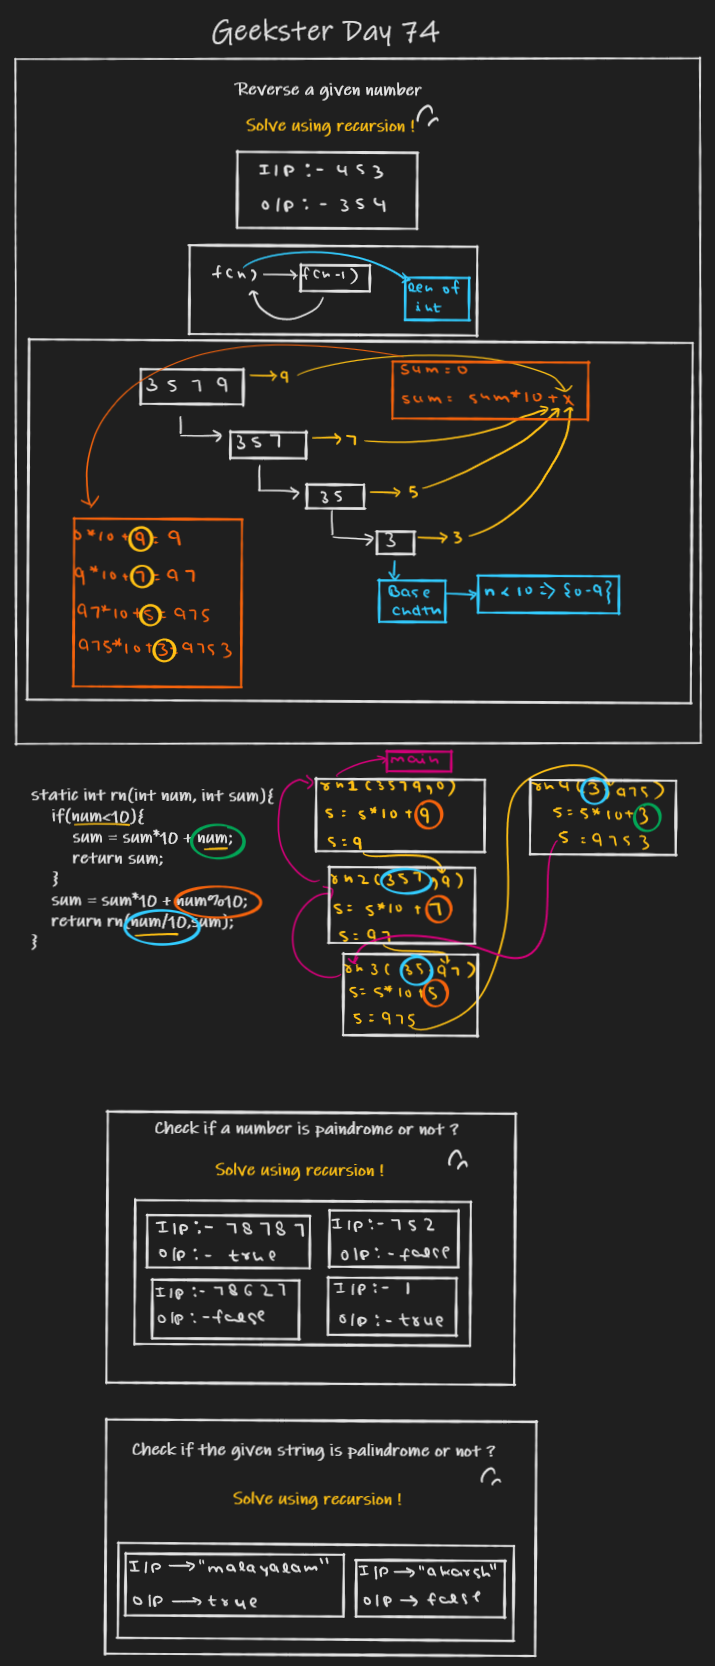 Geekster Day 74
Reverse a given number
Solve using recursion !
I/P :- 453
O/P :- 354
f(n) f(n-1)
len of
int
3 5 7 9
9
sum = 0
sum = sum*10 + x
3 5 7
7
3 5
5
3
3
Base
cndtn
n < 10 => {0-9}
0*10 + 9 = 9
9*10 + 7 = 97
97*10 + 5 = 975
975*10 + 3 = 9753
main
static int rn(int num, int sum){
if(num<10){
sum = sum*10 + num;
return sum;
}
sum = sum*10 + num%10;
return rn(num/10,sum);
}
rn1(3579,0)
s = s*10 + 9
s = 9
rn2(357,9)
s = s*10 + 7
s = 97
rn3(35,97)
s = s*10 + 5
s = 975
rn4(3,975)
s = s*10 + 3
s = 9753
Check if a number is paindrome or not ?
Solve using recursion !
I/P :- 78787
O/P :- true
I/P :- 752
O/P :- false
I/P :- 78627
O/P :- false
I/P :- 1
O/P :- true
Check if the given string is palindrome or not ?
Solve using recursion !
I/P → "malayalam"
O/P → true
I/P → "akarsh"
O/P → false